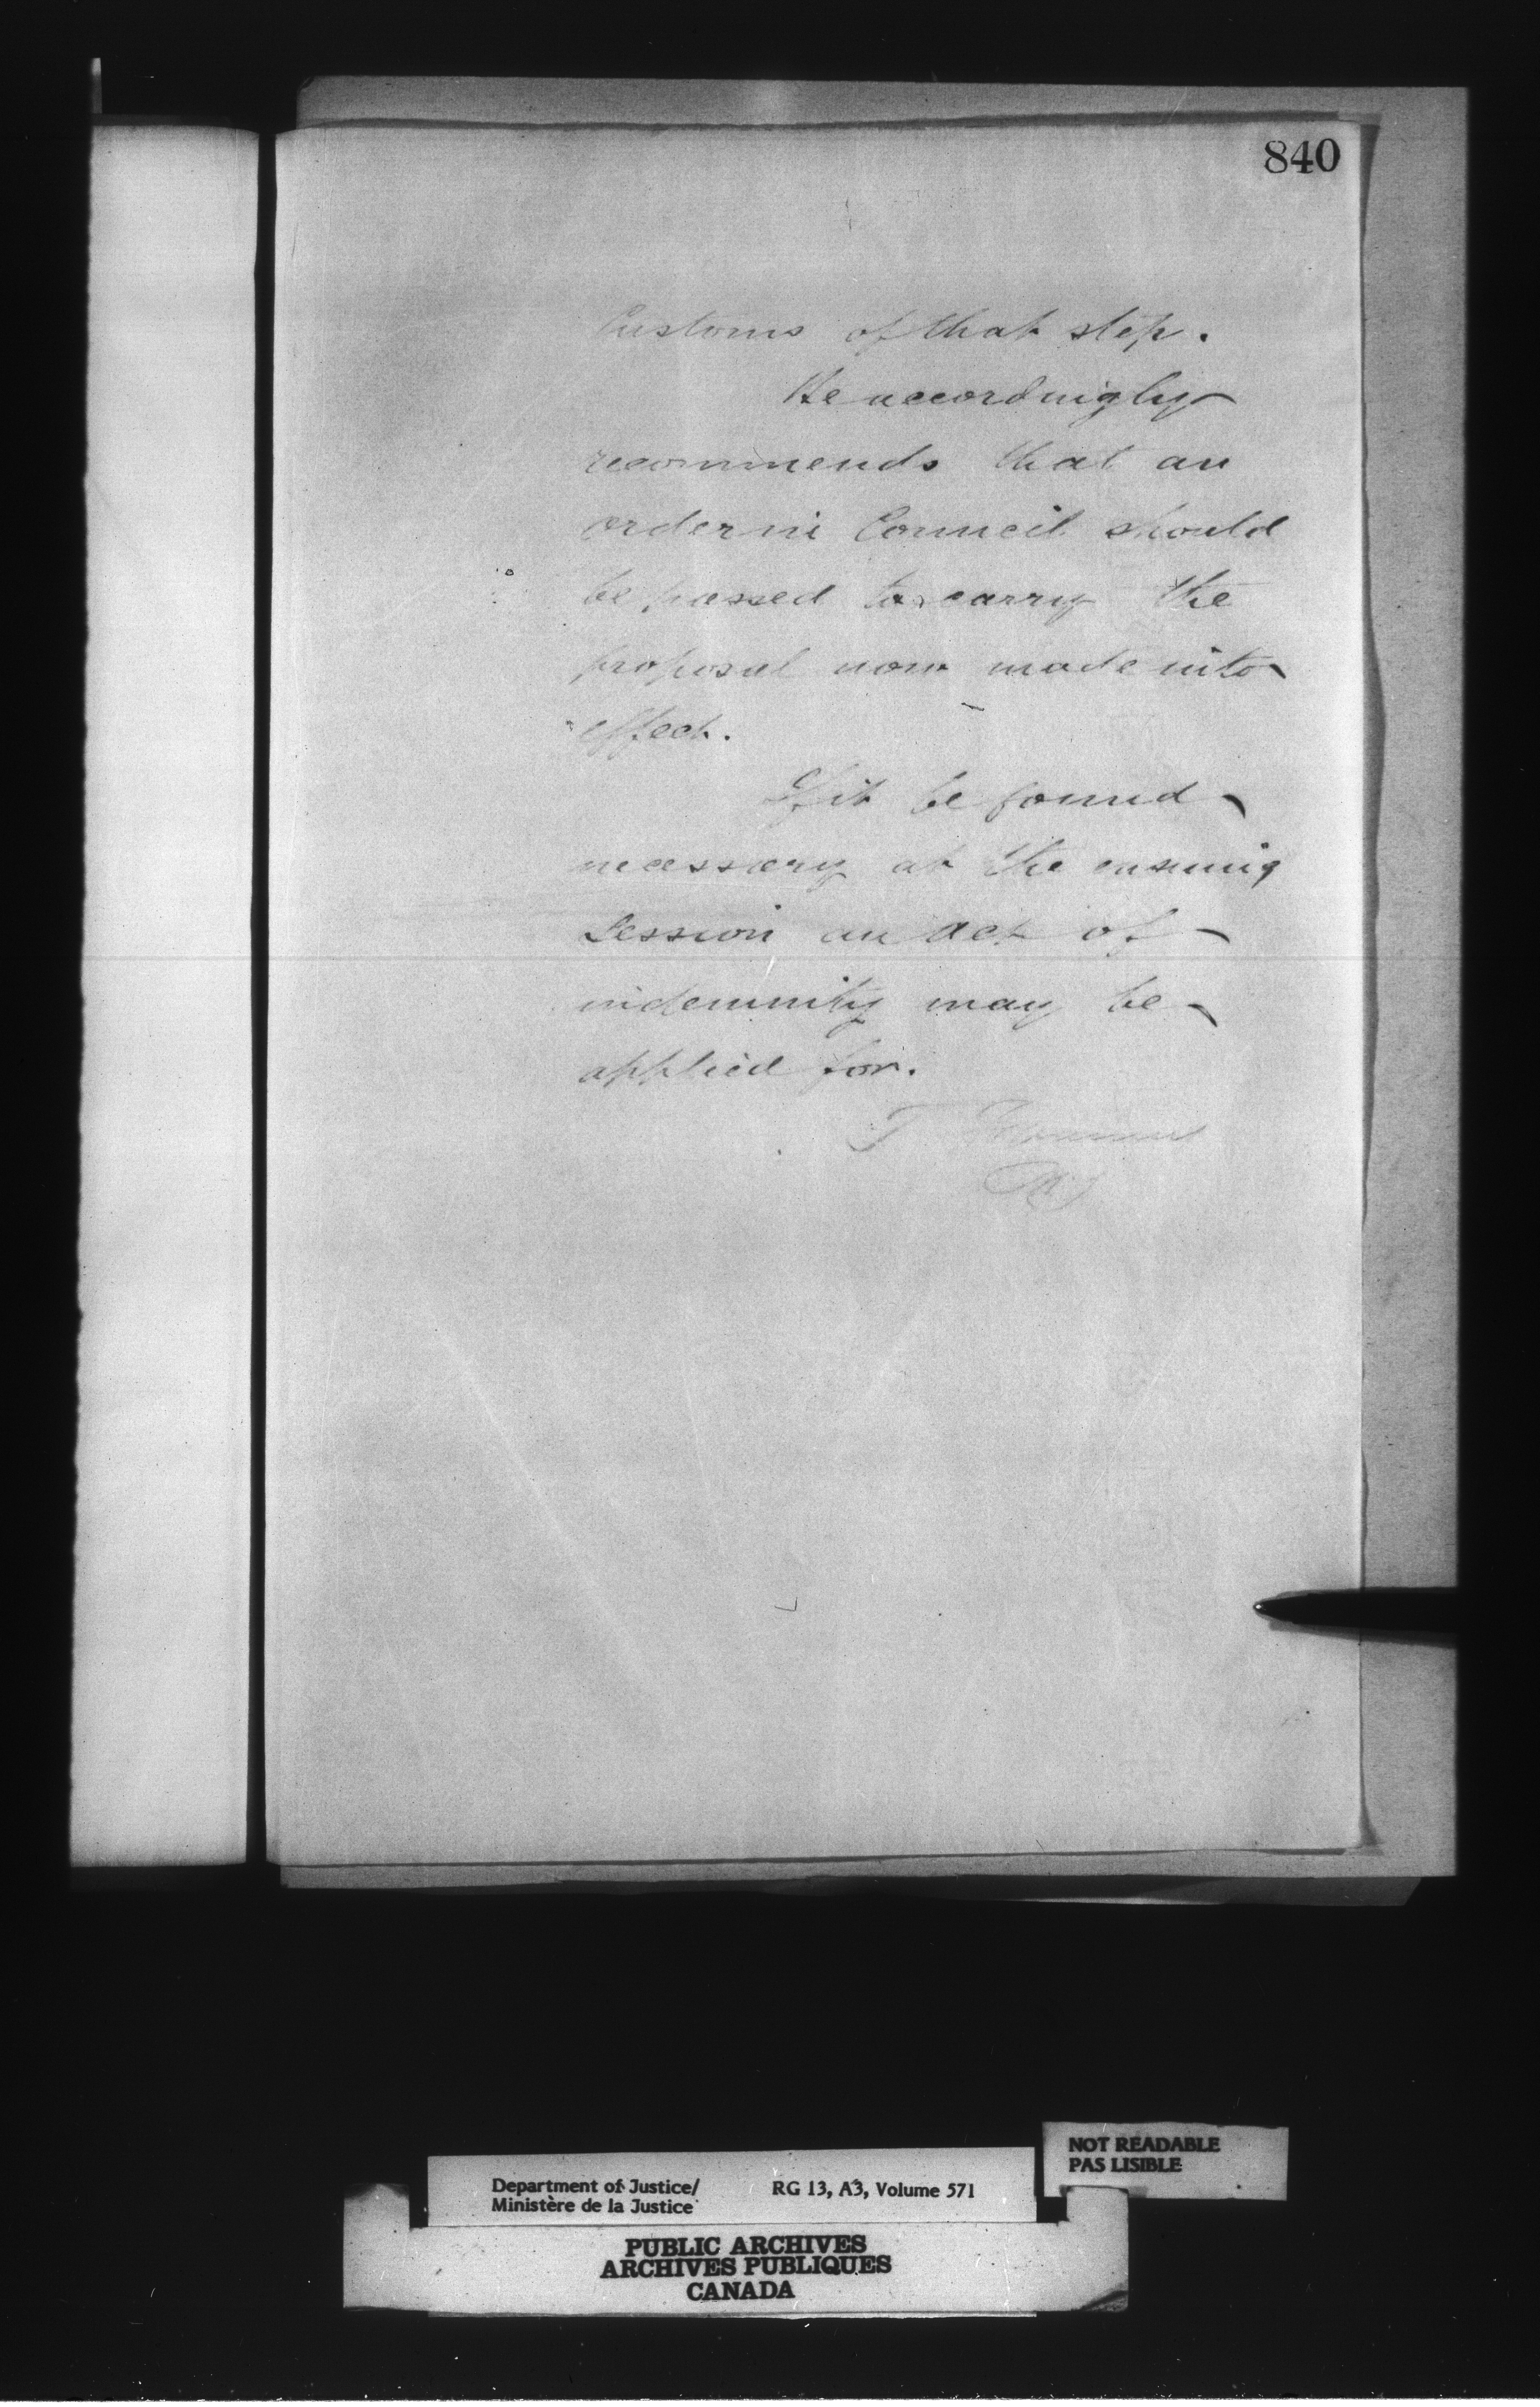 840
Customs of that step.
He accordingly
recommends that an
order in Council should
be passed to carry the
proposal now made into
effect.
If it be found
necessary at the ensuing
Session an act of
indemnity may be
applied for.
T
NOT READABLE
PAS LISIBLE
Department of Justice/ RG 13, A3, Volume 571
Ministère de la Justice
PUBLIC ARCHIVES
ARCHIVES PUBLIQUES
CANADA